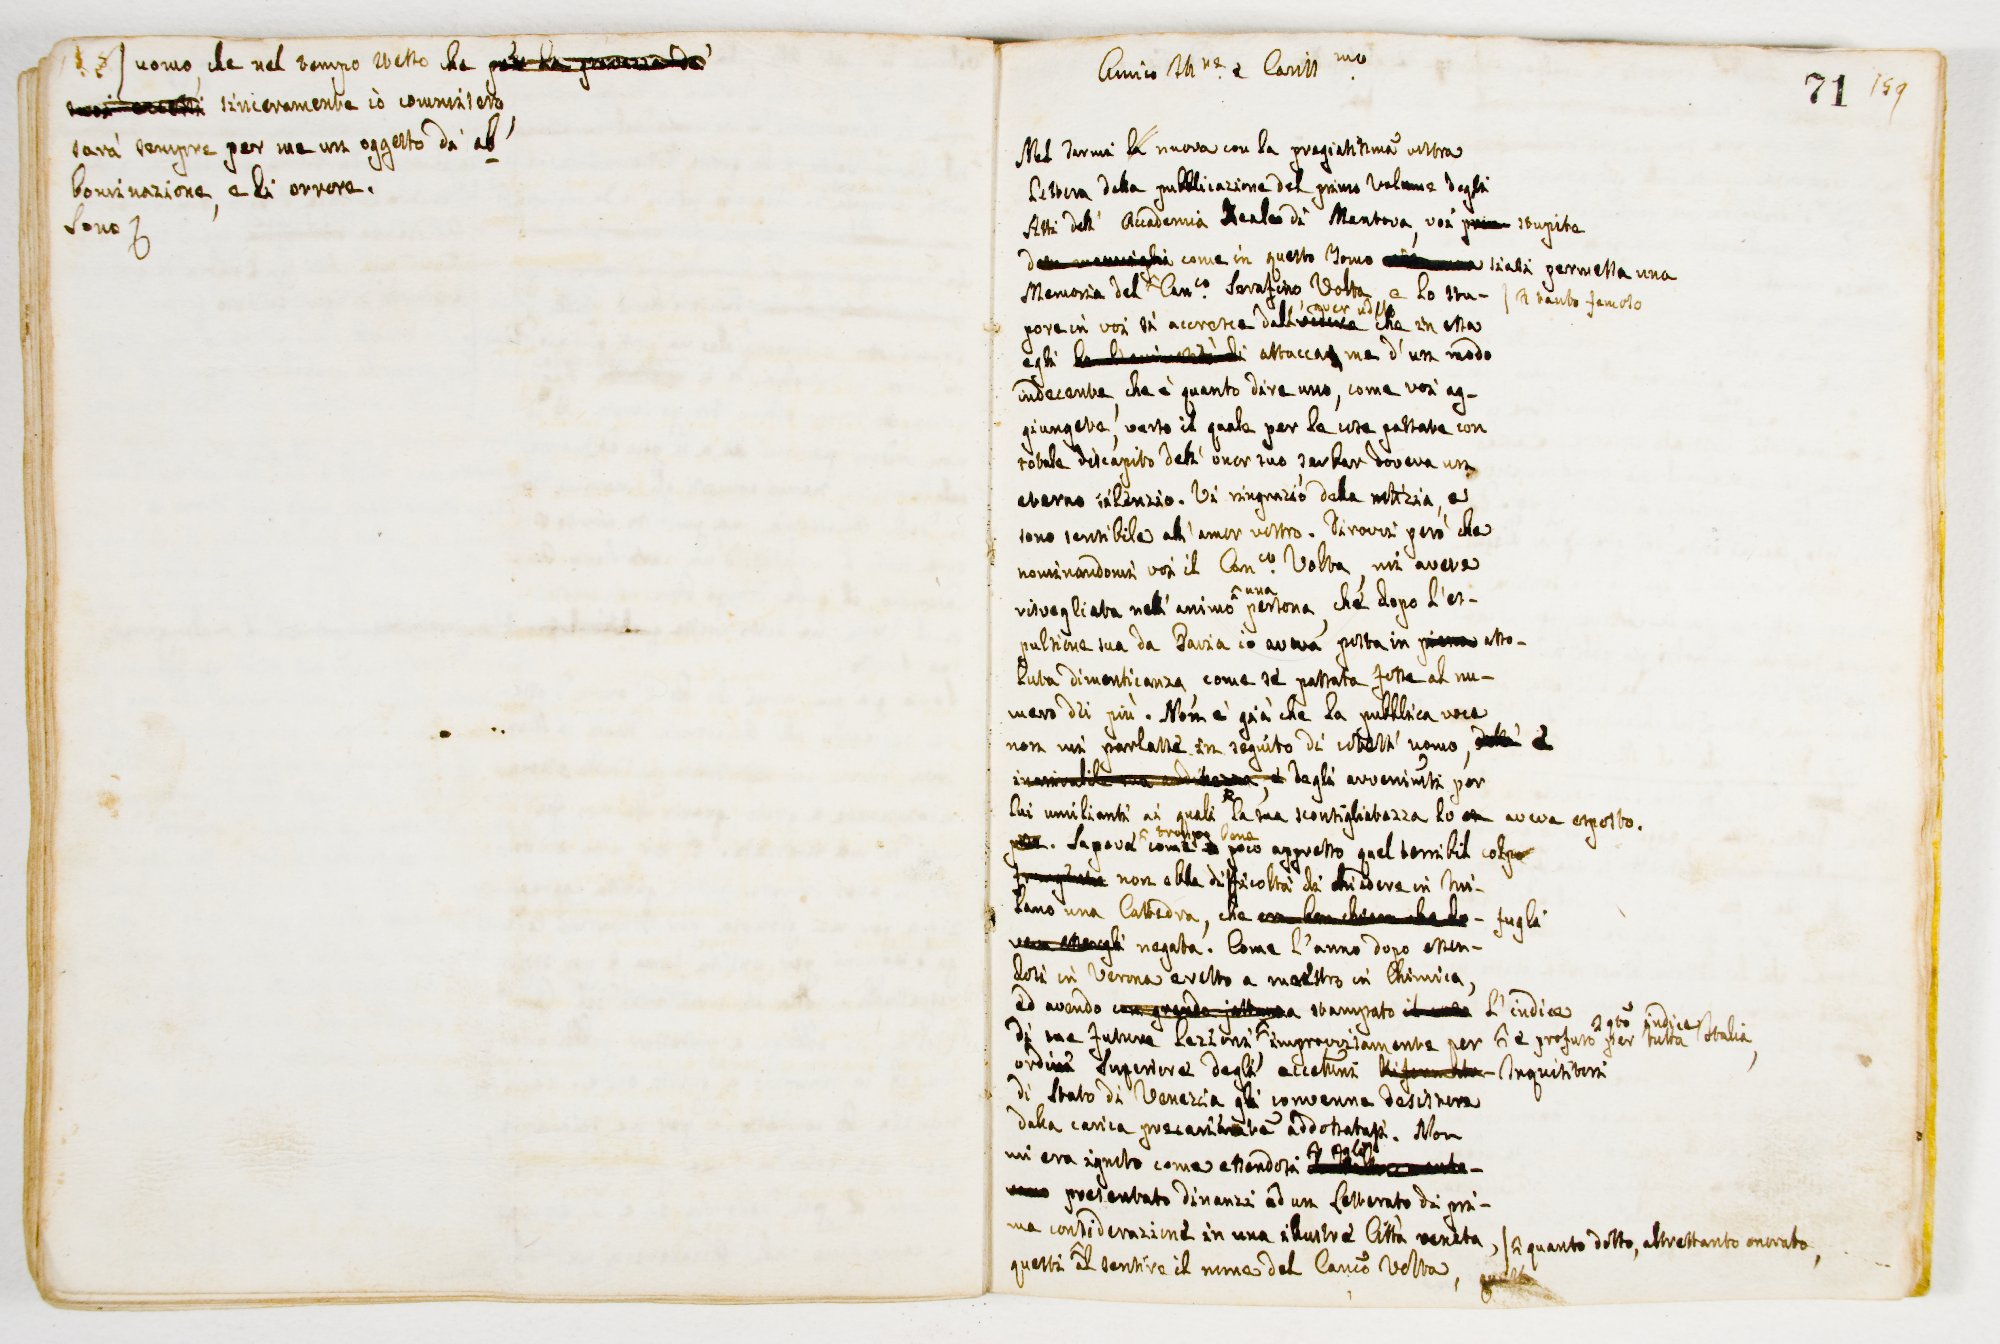 uomo, che nel tempo stesso che per la
sinceramente io commisero,
sarà sempre per me un oggetto di ab
bominazione, e di orrore.
Sono
71 159
Amico St.ne e Cariss.mo
Nel darmi la nuova con la pregiatissima vostra
Lettera della pubblicazione del primo Volume degli
Atti dell' Accademia Reale di Mantova, voi stupite
come in questo Tomo siasi permessa una
Memoria del Can.co Serafino Volta e lo stu-
sì tanto famoso
pore in voi si accresce dall' aver udito che in essa
egli attacca me d'un modo
indecente, che è quanto dire uno, come voi ag-
giungete, verso il quale per le cose passate con
totale discapito dell' onor suo serbar doveva un
eterno silenzio. Vi ringrazio della notizia, e
sono sensibile all' amor vostro. Dirovvi però che
nominandomi voi il Can.co Volta, mi avete
risvegliata nell' animo una persona, che dopo l'es-
pulsione sua da Pavia io aveva posta in piena asso-
luta dimenticanza, come se passata fosse al nu-
mero dei più. Non è già che la pubblica voce
non mi parlasse in seguito di cotest' uomo, e
degli avvenimenti per
lui umilianti ai quali la sua sconsigliatezza lo aveva esposto.
Sapeva troppo bene come poco appresso quel terribil colpo
non ebbe difficoltà di chiedere in Mi-
lano una Cattedra, che fugli
negata. Come l'anno dopo essen-
dosi in Verona eretto a maestro in Chimica,
ed avendo stampato l'indice
di sue future lezioni improvvisamente per
e profuso q.to indice per tutta Italia,
ordine Superiore degli eccelsi Inquisitori
di Stato di Venezia gli convenne desistere
dalla carica precariamente addossatasi. Non
mi era ignoto come essendosi egli
presentato dinanzi ad un Letterato di pri-
ma considerazione in una illustre Città veneta,
quanto dotto, altrettanto onorato,
questi al sentire il nome del Canco Volta,